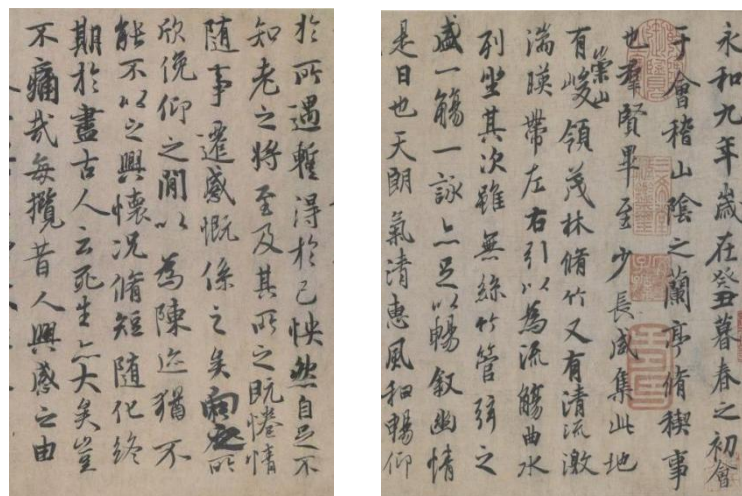 永和九年歲在癸丑暮春之初會
于會稽山陰之蘭亭脩稧事
也羣賢畢至少長咸集此地
有崇山峻領茂林脩竹又有清流激
湍暎帶左右引以為流觴曲水
列坐其次雖無絲竹管弦之
盛一觴一詠亦足以暢敘幽情
是日也天朗氣清惠風和暢仰
於所遇蹔得於己怏然自足不
知老之將至及其所之既惓情
隨事遷感慨係之矣向之所
欣俛仰之閒以為陳迹猶不
能不以之興懷况脩短隨化終
期於盡古人云死生亦大矣豈
不痛哉每攬昔人興感之由